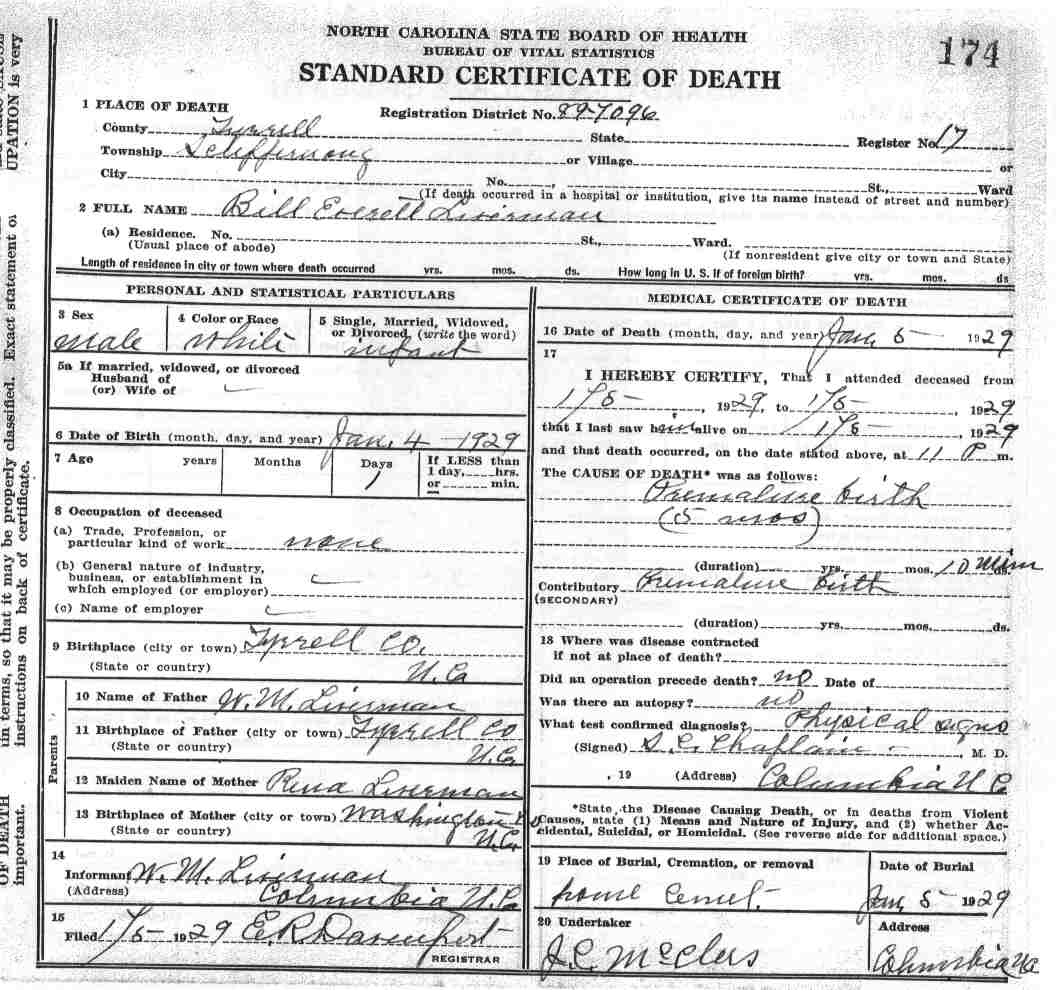 NORTH CAROLINA STATE BOARD OF HEALTH
BUREAU OF VITAL STATISTICS
174
STANDARD CERTIFICATE OF DEATH
1 PLACE OF DEATH
Registration District No. 89-7096
County Tyrrell State Register No. 17
Township or Village or
City No. , St., Ward
(If death occurred in a hospital or institution, give its name instead of street and number)
2 FULL NAME Bill Everell Liverman
(a) Residence. No. St., Ward.
(Usual place of abode) (If nonresident give city or town and State)
Length of residence in city or town where death occurred yrs. mos. ds. How long in U. S. if of foreign birth? yrs. mos. ds
PERSONAL AND STATISTICAL PARTICULARS
3 Sex
male
4 Color or Race
white
5 Single, Married, Widowed,
or Divorced (write the word)
infant
5a If married, widowed, or divorced
Husband of
(or) Wife of
6 Date of Birth (month, day, and year) Jan. 4 - 1929
7 Age years Months Days If LESS than
1 1 day, hrs.
or min.
8 Occupation of deceased
(a) Trade, Profession, or
particular kind of work none
(b) General nature of industry,
business, or establishment in
which employed (or employer)
(c) Name of employer
9 Birthplace (city or town) Tyrrell Co.
(State or country) N.C.
Parents
10 Name of Father W. M. Liverman
11 Birthplace of Father (city or town) Tyrrell Co
(State or country) N.C.
12 Maiden Name of Mother Rena Liverman
13 Birthplace of Mother (city or town) Washington
(State or country) N.C.
14
Informant W. M. Liverman
(Address) Columbia N.C.
15
Filed 1/5- 1929 E. R. Davenport
REGISTRAR
MEDICAL CERTIFICATE OF DEATH
16 Date of Death (month, day, and year) Jan, 5 - 1929
17
I HEREBY CERTIFY, That I attended deceased from
1/5 - , 1929, to 1/5 - , 1929
that I last saw him alive on 1/5 - , 1929
and that death occurred, on the date stated above, at 11 P m.
The CAUSE OF DEATH* was as follows:
Premature birth
(5 mos)
(duration) yrs. mos. 10 ds.
Contributory Premature birth
(SECONDARY)
(duration) yrs. mos. ds.
18 Where was disease contracted
if not at place of death?
Did an operation precede death? no Date of
Was there an autopsy? no
What test confirmed diagnosis? Physical signs
(Signed) S. C. Chaplain - , M. D.
, 19 (Address) Columbia N C
*State the Disease Causing Death, or in deaths from Violent
Causes, state (1) Means and Nature of Injury, and (2) whether Ac-
cidental, Suicidal, or Homicidal. (See reverse side for additional space.)
19 Place of Burial, Cremation, or removal
home Cemet.
Date of Burial
Jan, 5 1929
20 Undertaker
J. C. McClees
Address
Columbia NC
UPATION is very
Exact statement of
in terms, so that it may be properly classified.
instructions on back of certificate.
OF DEATH
important.